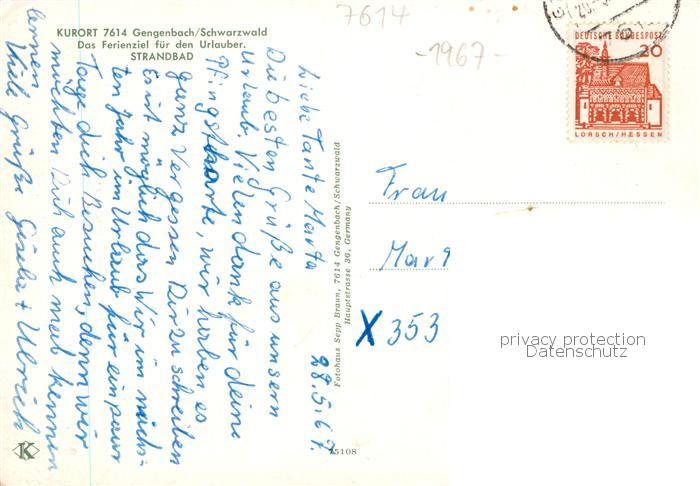 KURORT 7614 Gengenbach/Schwarzwald
Das Ferienziel für den Urlauber.
STRANDBAD
7614
-1967-
DEUTSCHE BUNDESPOST
20
LORSCH/HESSEN
28.5.67.
Liebe Tante Marta
Die besten Grüße aus unsern
Urlaub. Vielen dank für deine
Pfingstkarte, wir haben es
ganz Vergessen Dir zu schreiben
Es ist möglich das Wir im näch-
ten Jahr im Urlaub für ein paar
Tage dich Besuchen, denn wir
möchten Dich auch mal kennen
lernen
Viele Grüße Gisela + Ulrich
Fotohaus Sepp Braun, 7614 Gengenbach/Schwarzwald
Hauptstrasse 36, Germany
Frau
X 353
privacy protection
Datenschutz
K
75108